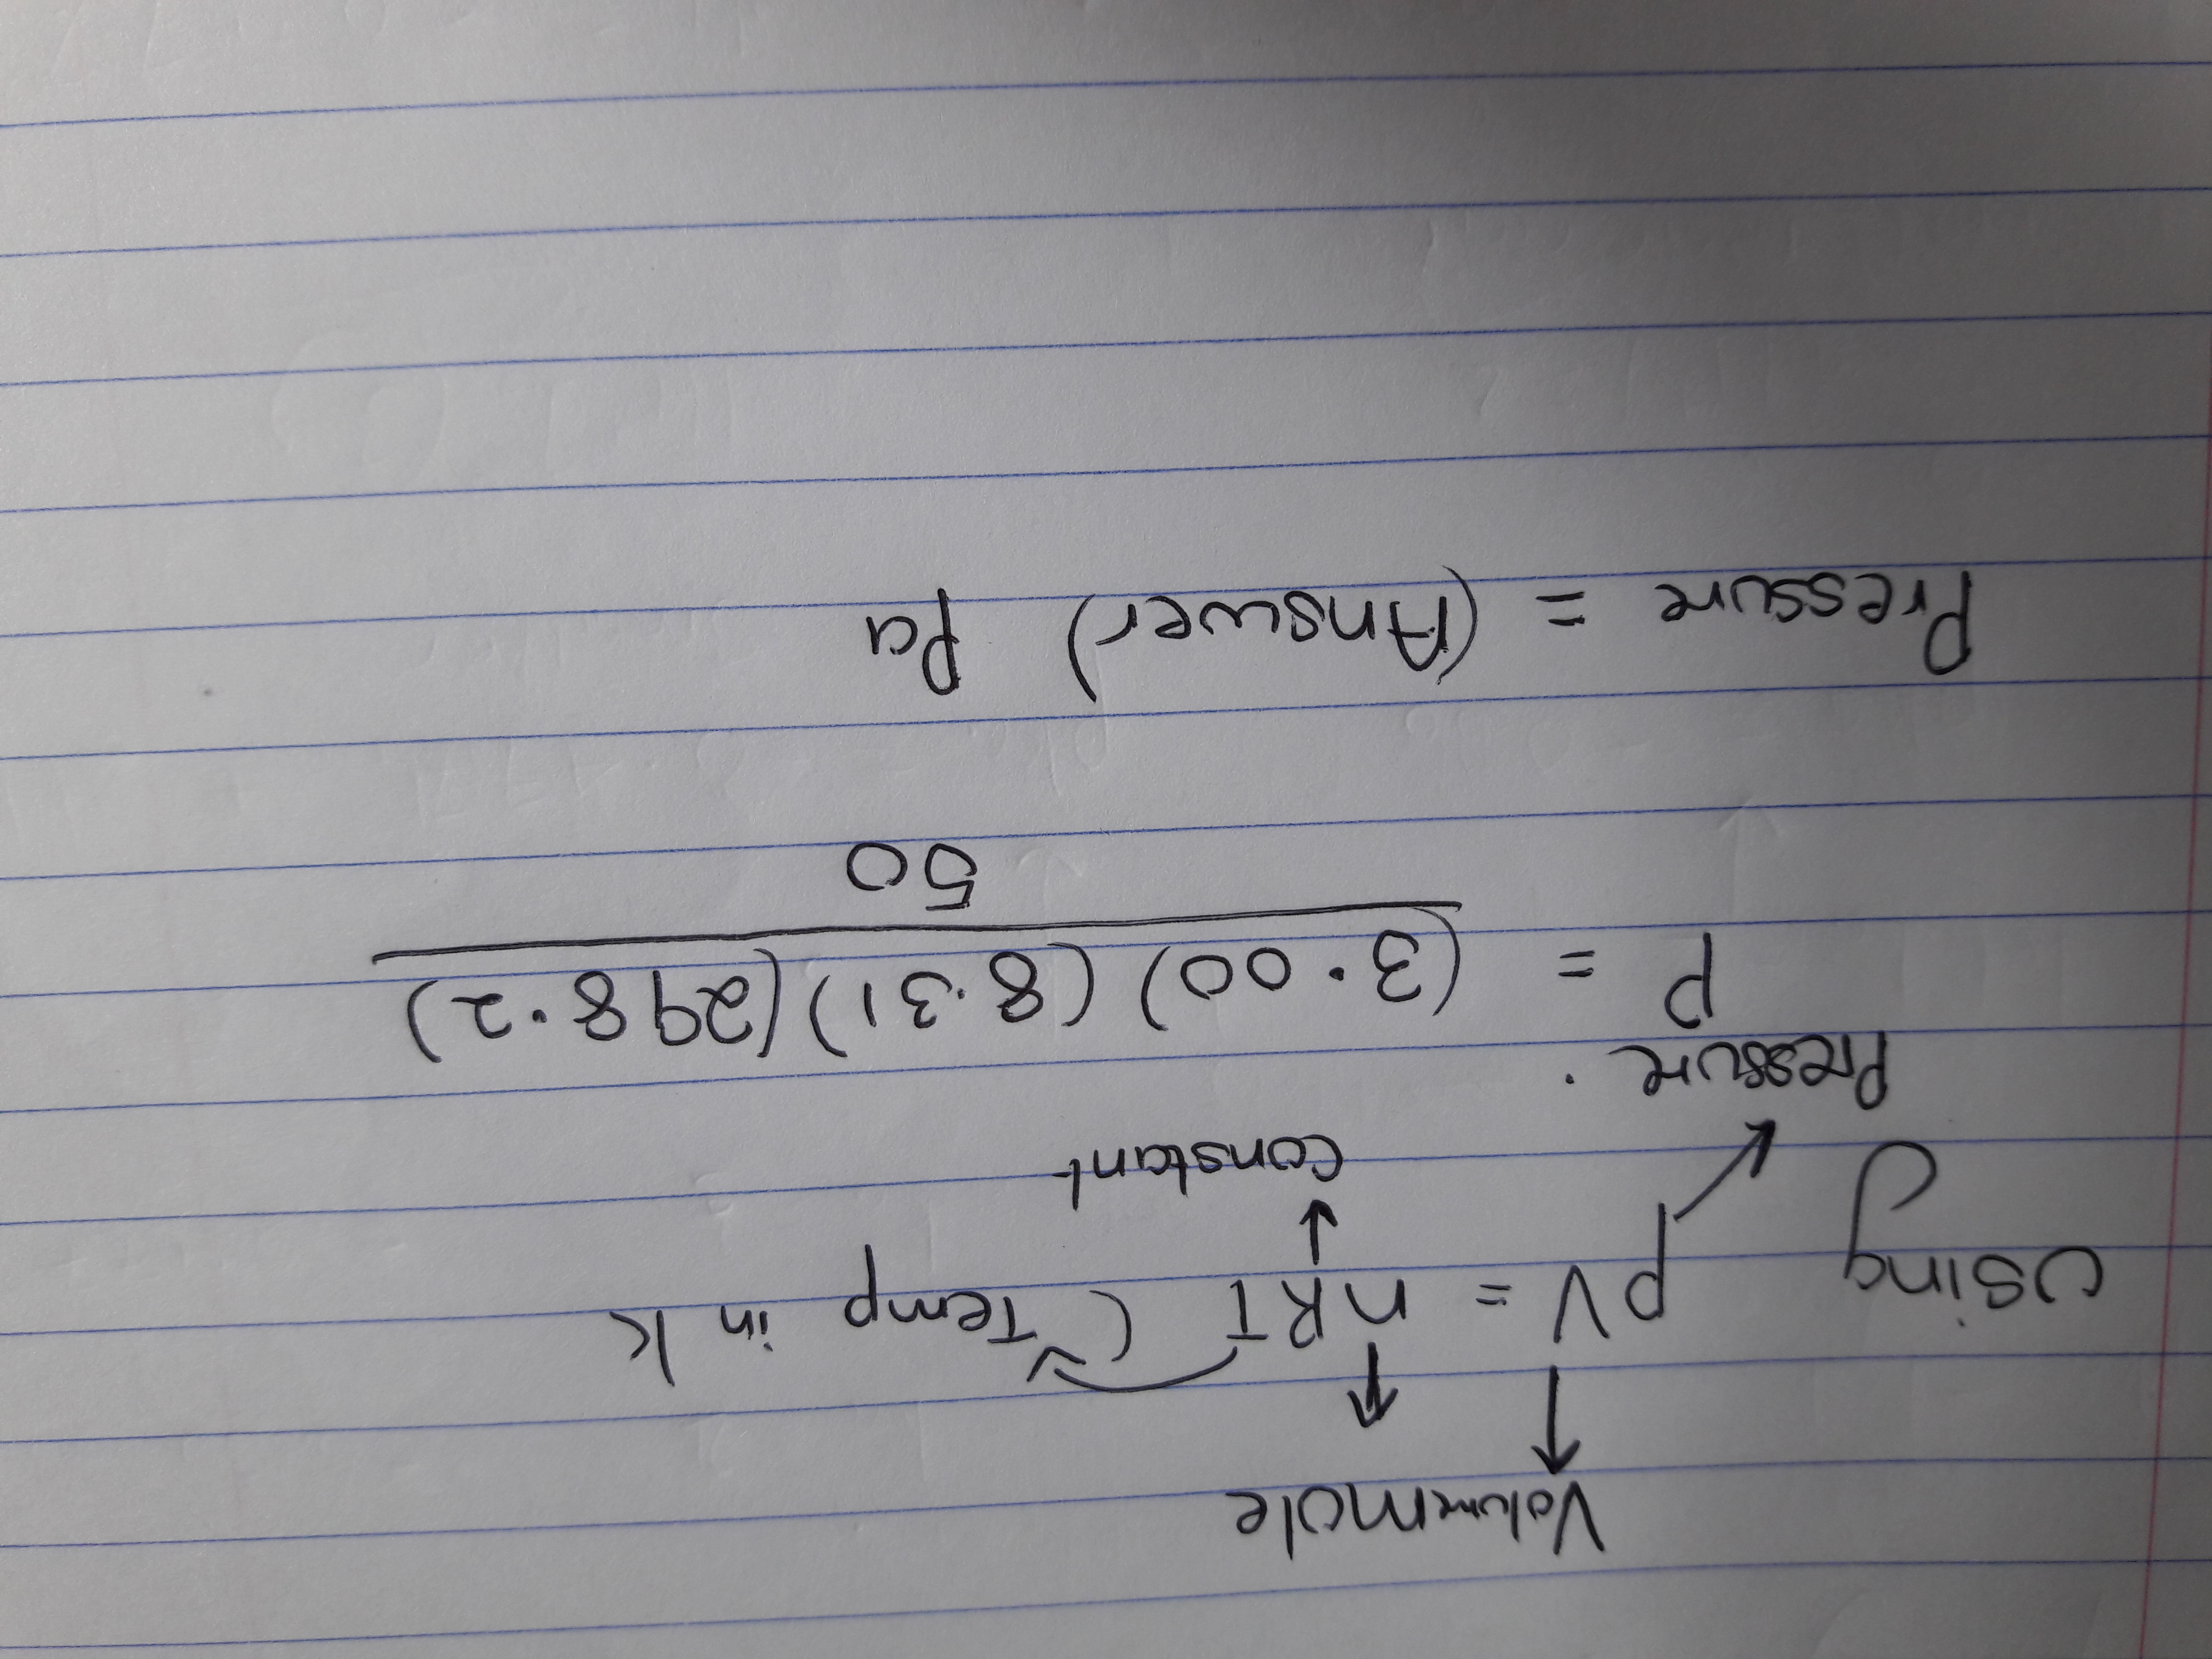 Volume mole
Using PV = nRT (Temp in K
Constant
Pressure.
P = (3.00) (8.31) (298.2)
50
Pressure = (Answer) Pa